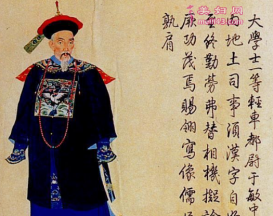 大學士一等輕車都尉于敏中
地土司事須漢字自
終勤勞弗替相機擬諭
厥功茂焉賜翎寫像儒
孰肩